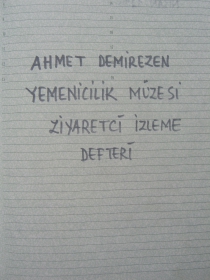 AHMET DEMİREZEN
YEMENİCİLİK MÜZESİ
ZİYARETCİ İZLEME
DEFTERİ